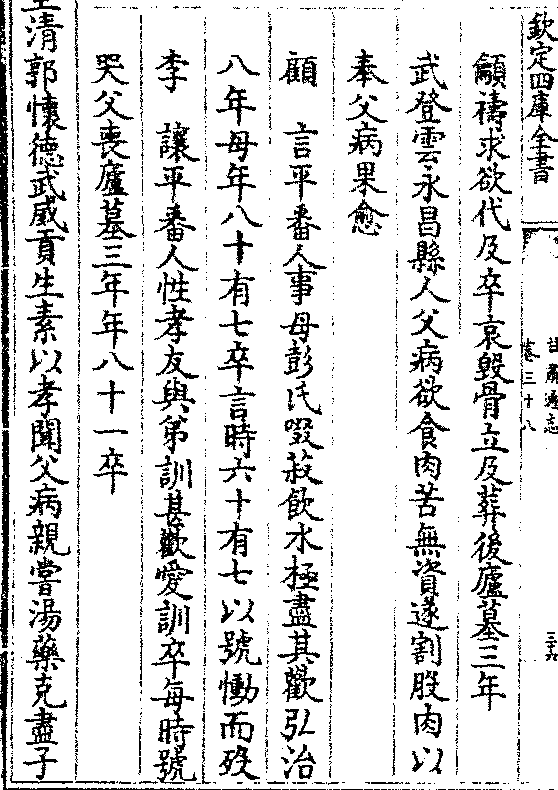 欽定四庫全書
甘肅通志
卷三十八
三十六
籲禱求欲代及卒哀毀骨立及葬後廬墓三年
武登雲永昌縣人父病欲食肉苦無資遂割股肉以
奉父病果愈
顧　言平番人事母彭氏啜菽飲水極盡其歡弘治
八年母年八十有七卒言時六十有七以號慟而歿
李　讓平番人性孝友與弟訓甚歡愛訓卒每時號
哭父喪廬墓三年年八十一卒
清郭懷德武威貢生素以孝聞父病親嘗湯藥克盡子